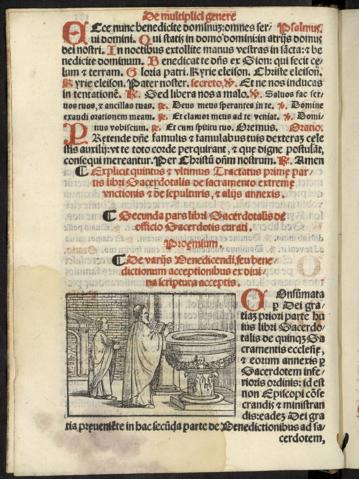 De multiplici genere
Ecce nunc benedicite dominũ: omnes ser- Psalmus.
ui domini. Qui statis in domo domini: in atrijs domus
dei nostri. In noctibus extollite manus vestras in sãcta: ⁊ be
nedicite dominum. Benedicat te dñs ex Sion: qui fecit ce-
lum ⁊ terram. Gloria patri. Kyrie eleison. Christe eleison.
Kyrie eleison. Pater noster. secreto, ℣. Et ne nos inducas
in tentationẽ. ℟. Sed libera nos a malo. ℣. Saluos fac ser-
uos tuos, ⁊ ancillas tuas. ℟. Deus meus sperantes in te. ℣. Domine
exaudi orationem meam. ℟. Et clamor meus ad te veniat. ℣. Domi-
nus vobiscum. ℟. Et cum spiritu tuo. Oremus. Oratio.
Pretende dñe famulis ⁊ famulabus tuis dexterã cele
stis auxilij: vt te toto corde perquirant, ⁊ que digne postulãt,
consequi mereantur. Per Christũ dñm nostrum. ℟. Amen
¶ Explicit quintus ⁊ vltimus Tractatus prime par-
tis libri Sacerdotalis de sacramento extreme
vnctionis ⁊ de sepulturis, ⁊ alijs annexis.
¶ Secunda pars libri Sacerdotalis de
officio Sacerdotis curati.
Proemium.
¶ De varijs Benedicendi, seu bene-
dictionum acceptionibus ex diui-
na scriptura acceptis.
COnsumata
p Dei gra-
tiaz priori parte hu
ius libri Sacerdo-
talis de quinqz Sa
cramentis ecclesie,
⁊ eorum annexis p
Sacerdotem infe-
rioris ordinis: id est
non Episcopi cõse
crandis ⁊ ministran
dis: eadez Dei gra-
tia preueniẽte in hac secũda parte de Benedictionibus ad sa-
cerdotem,